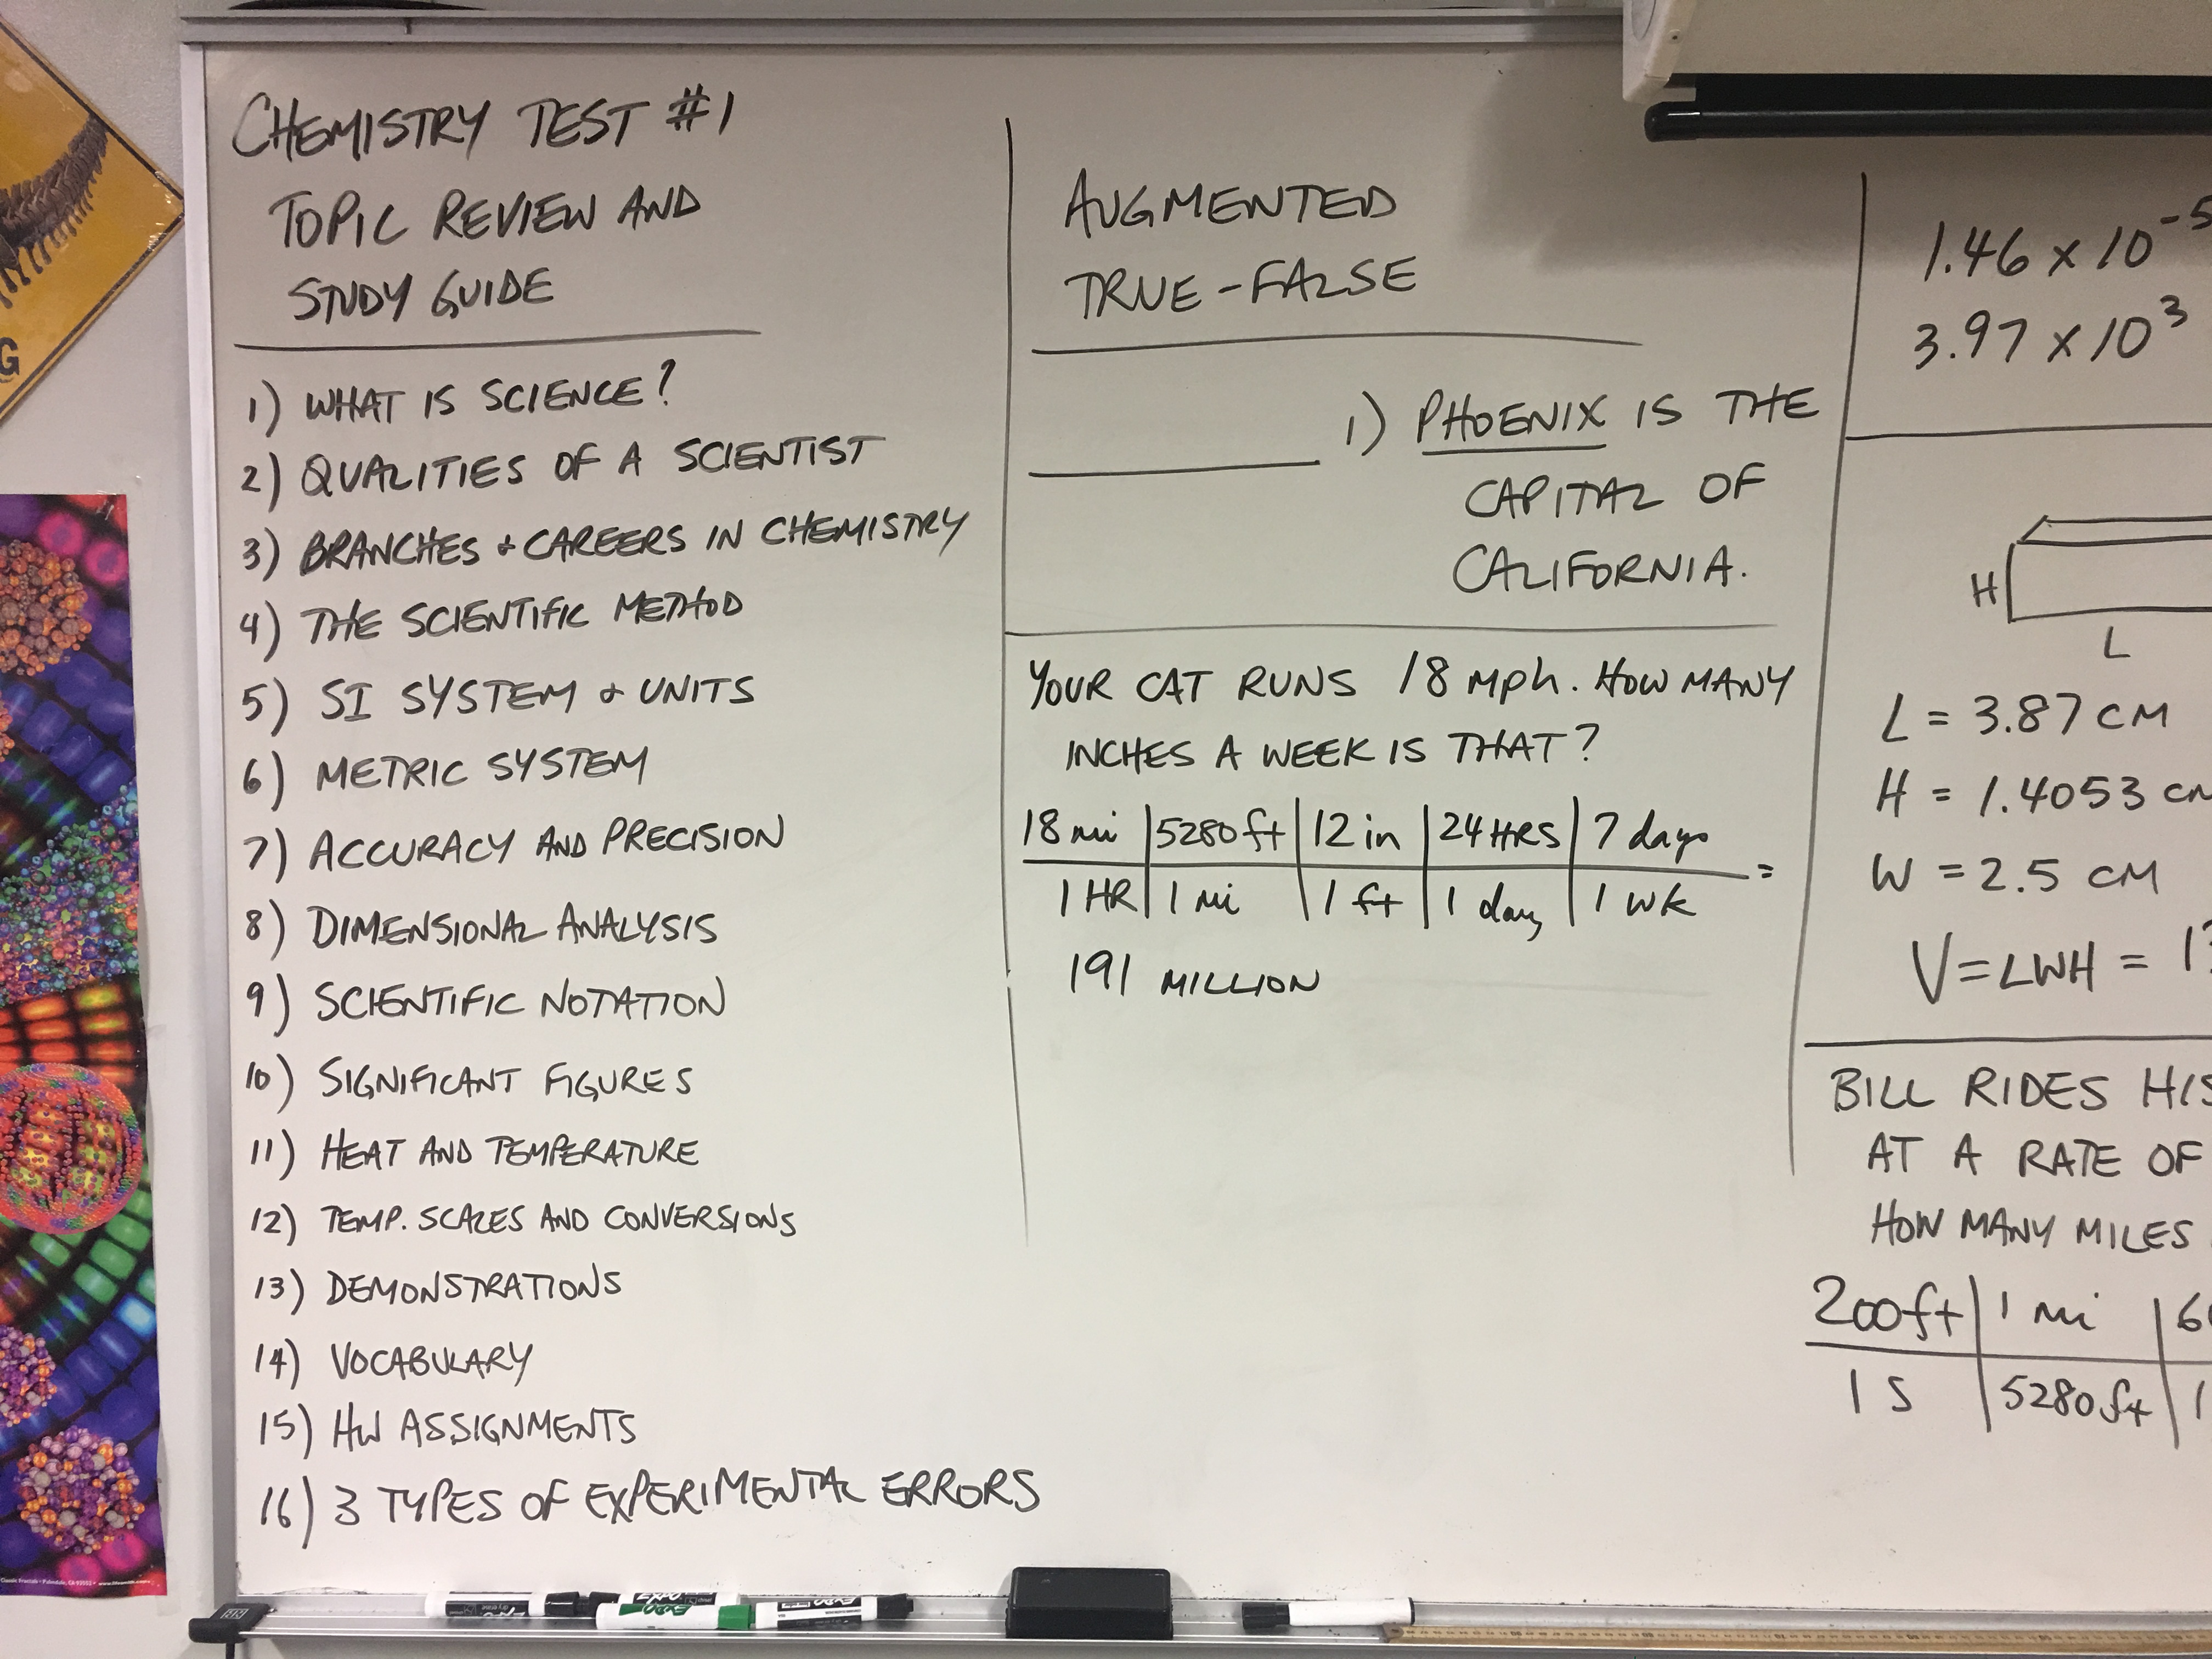 CHEMISTRY TEST #1
TOPIC REVIEW AND
STUDY GUIDE
1) WHAT IS SCIENCE?
2) QUALITIES OF A SCIENTIST
3) BRANCHES & CAREERS IN CHEMISTRY
4) THE SCIENTIFIC METHOD
5) SI SYSTEM & UNITS
6) METRIC SYSTEM
7) ACCURACY AND PRECISION
8) DIMENSIONAL ANALYSIS
9) SCIENTIFIC NOTATION
10) SIGNIFICANT FIGURES
11) HEAT AND TEMPERATURE
12) TEMP. SCALES AND CONVERSIONS
13) DEMONSTRATIONS
14) VOCABULARY
15) HW ASSIGNMENTS
16) 3 TYPES OF EXPERIMENTAL ERRORS
AUGMENTED
TRUE-FALSE
1) PHOENIX IS THE
CAPITAL OF
CALIFORNIA.
YOUR CAT RUNS 18 mph. HOW MANY
INCHES A WEEK IS THAT?
18 mi | 5280 ft | 12 in | 24 HRS | 7 days
1 HR | 1 mi | 1 ft | 1 day | 1 wk =
191 MILLION
1.46 x 10^-5
3.97 x 10^3
H
L
L = 3.87 CM
H = 1.4053 CM
W = 2.5 CM
V = LWH = 13
BILL RIDES HIS
AT A RATE OF
HOW MANY MILES
200 ft | 1 mi | 6
1 S | 5280 ft | 1
G
EXPO